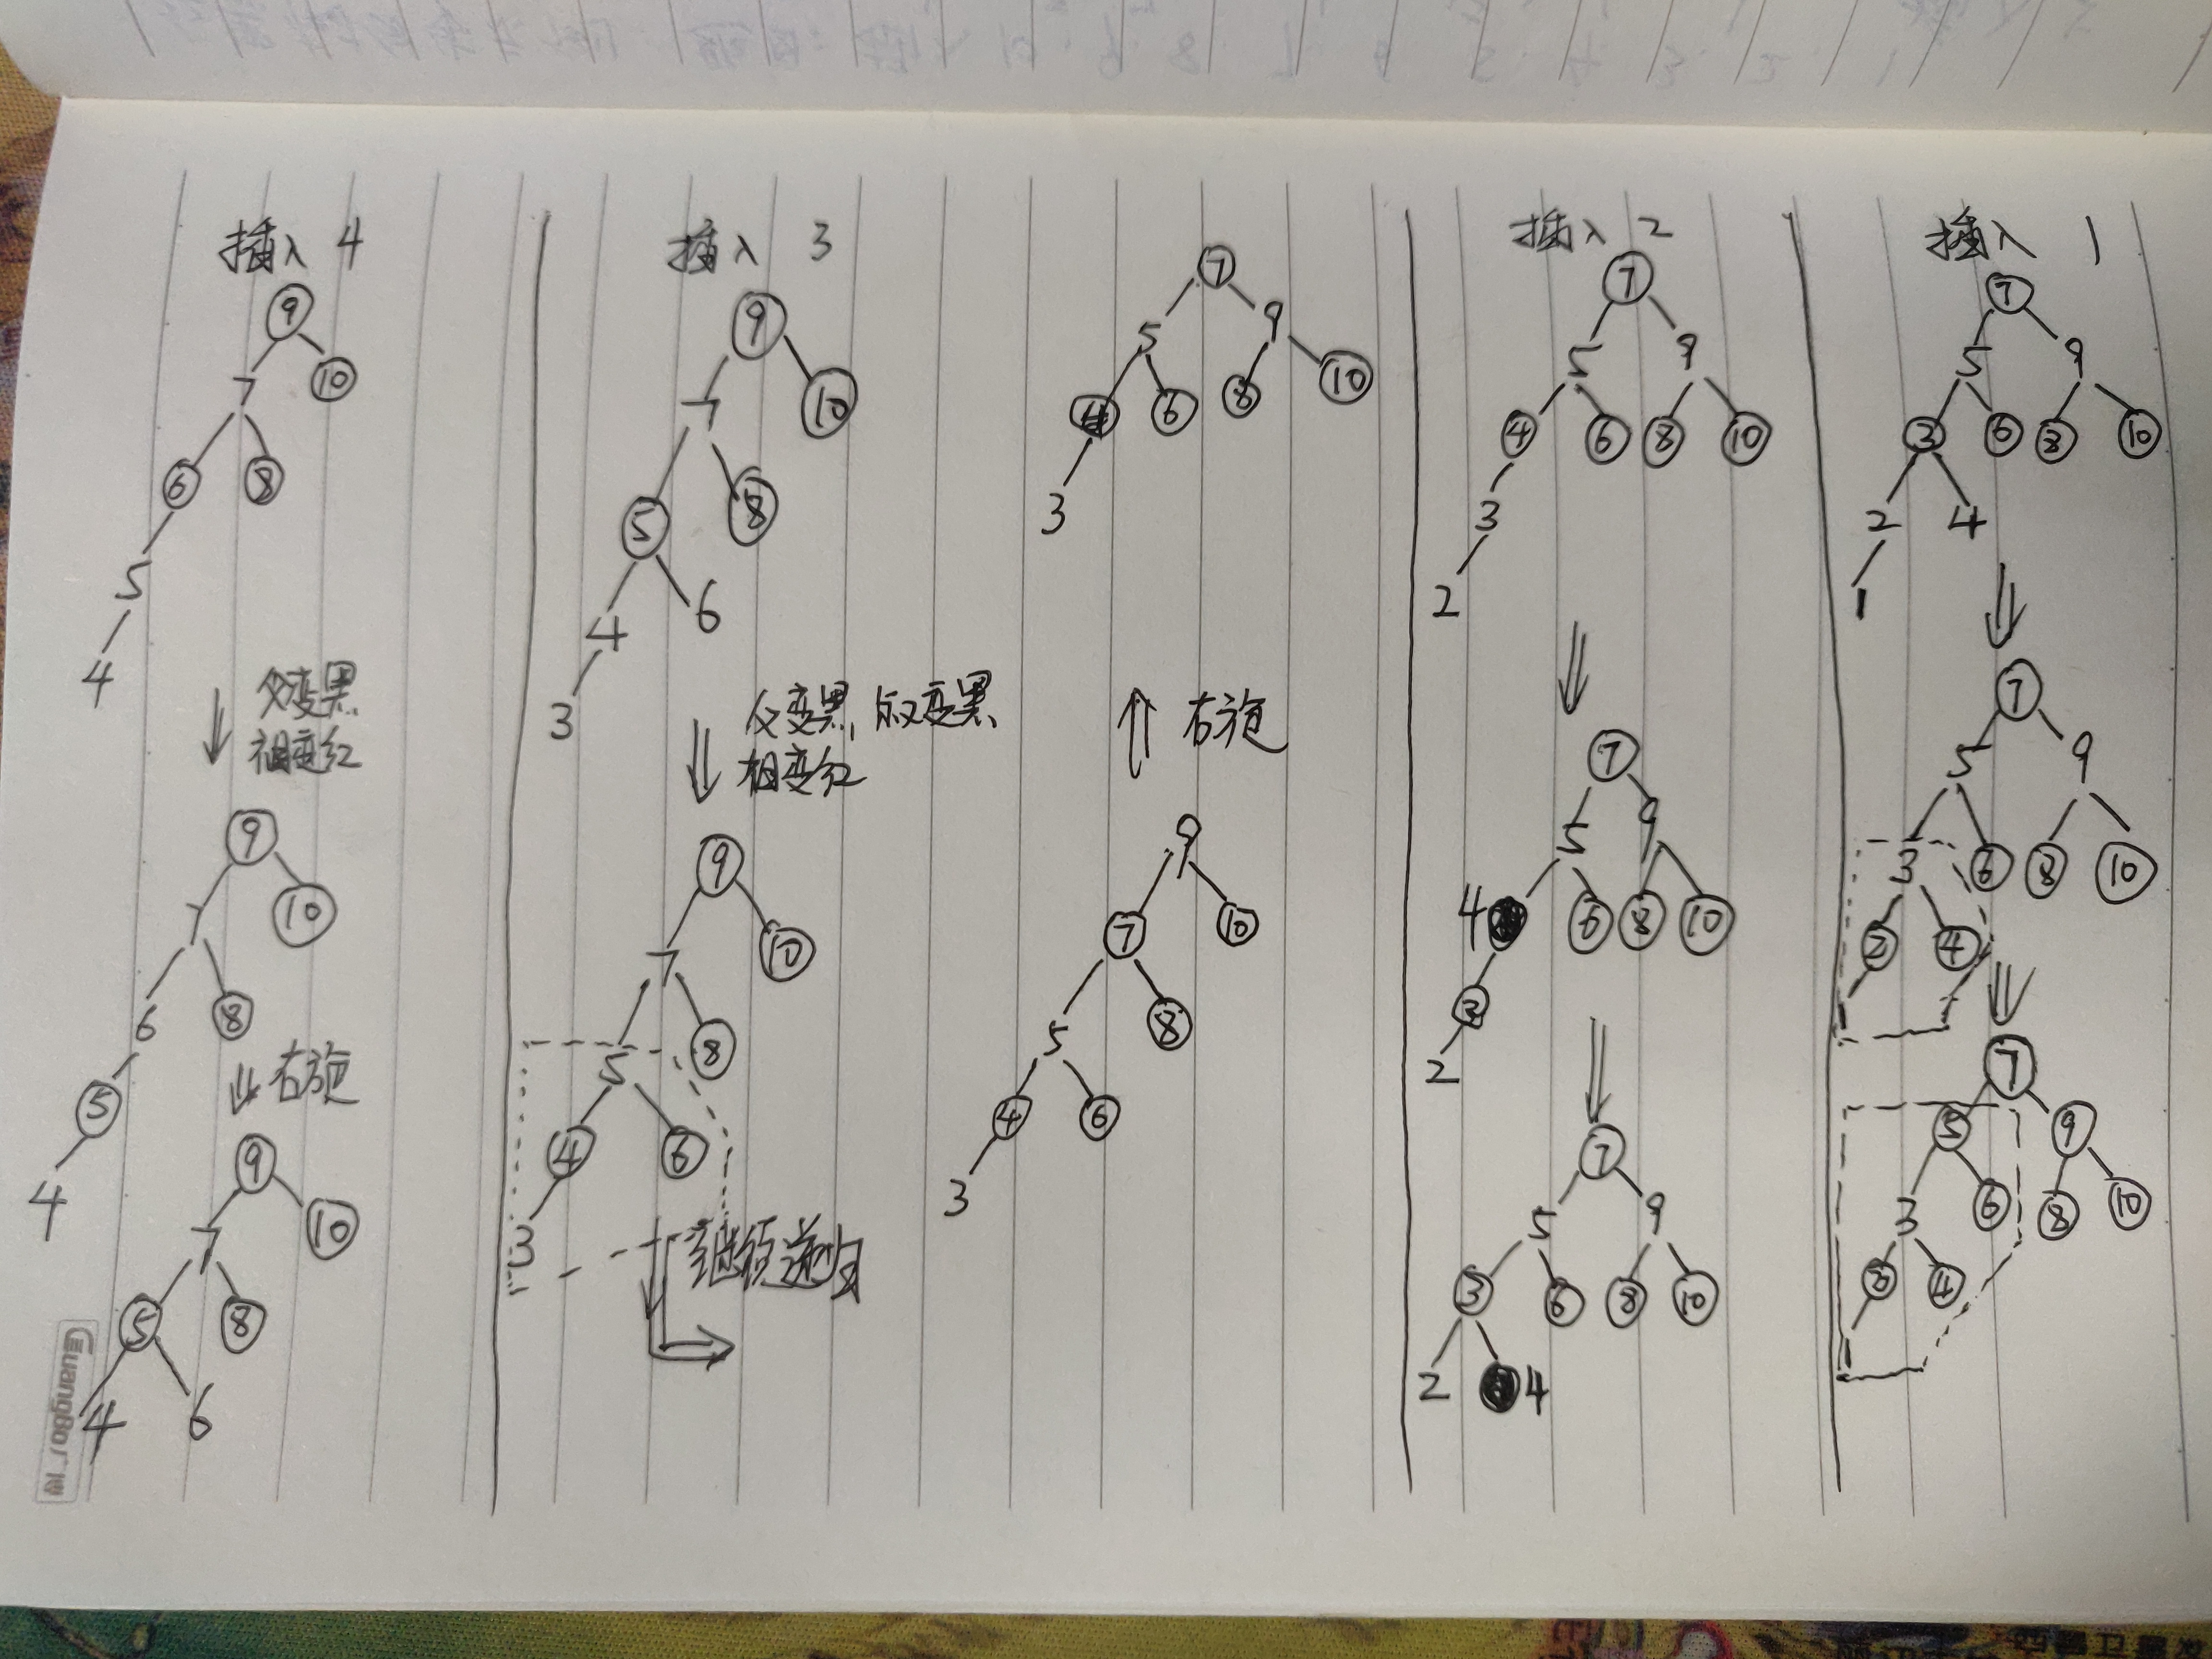 插入 4
9
7 10
6 8
5
4
父变黑
祖变红
9
7 10
6 8
5
4
右旋
9
7 10
5 8
4 6
插入 3
9
7 10
5 8
4 6
3
父变黑 叔变黑
祖变红
9
7 10
5 8
4 6
3
继续递归
9
7 10
5 8
4 6
3
右旋
7
5 9
4 6 8 10
3
插入 2
7
5 9
4 6 8 10
3
2
7
5 9
4 6 8 10
3
2
7
5 9
3 6 8 10
2 4
插入 1
7
5 9
3 6 8 10
2 4
1
7
5 9
3 6 8 10
2 4
1
7
5 9
3 6 8 10
2 4
1
GuangBo 广博